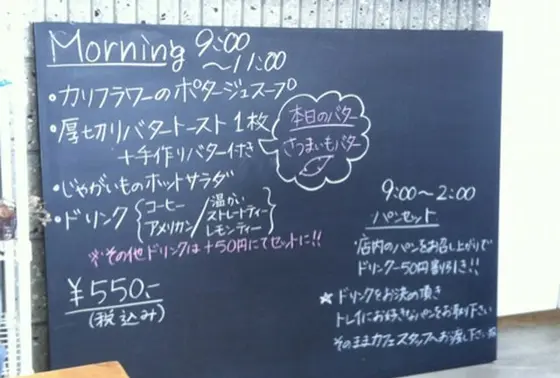 Morning 9:00
～11:00
・カリフラワーのポタージュスープ
・厚切りバタートースト1枚
+手作りバター付き
本日のバター
さつまいもバター
・じゃがいものホットサラダ
・ドリンク
コーヒー
アメリカン
温かい
ストレートティー
レモンティー
※その他ドリンクは+50円にてセットに!!
¥550.-
(税込み)
9:00～2:00
パンセット
店内のパンをお召し上がりで
ドリンク-50円割引き!!
★ドリンクをお決め頂き
トレイにお好きなパンをお取り下さい
そのままカフェスタッフへお渡し下さい